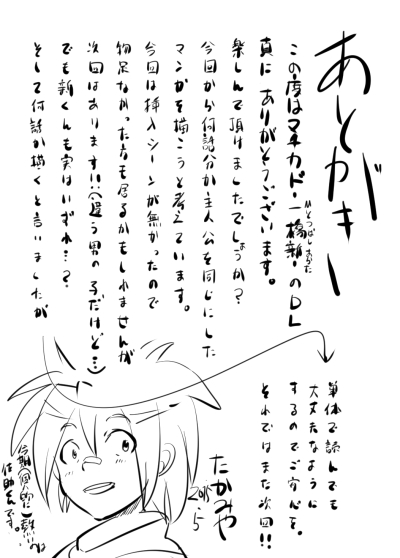 あとがきー
この度はマチカド・一橋新・のDL
ひとつばしあらた
真にありがとうございます。
楽しんで頂けましたでしょうか？
今回から何話分か主人公を同じにした
マンガを描こうと考えています。
今回は挿入シーンが無かったので
物足なかった方も居るかもしれませんが
次回はあります!!(違う男の子だけど…)
でも新くんも実はいずれ…？
そして何話か描くと言いましたが
単体で読んでも
大丈夫なように
するのでご安心を。
それではまた次回!!
たかみや
5
佐助くんです。